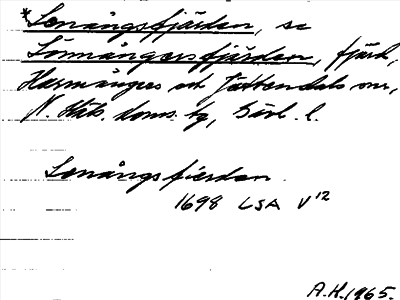 *Lenångsfjärden, se
Lönnångersfjärden, fjärd,
Harmångers och Jättendals snr,
N. Häls. doms. tg, Gävl. l.
Lenångsfierden
1698 LSA V12
A.H. 1965.